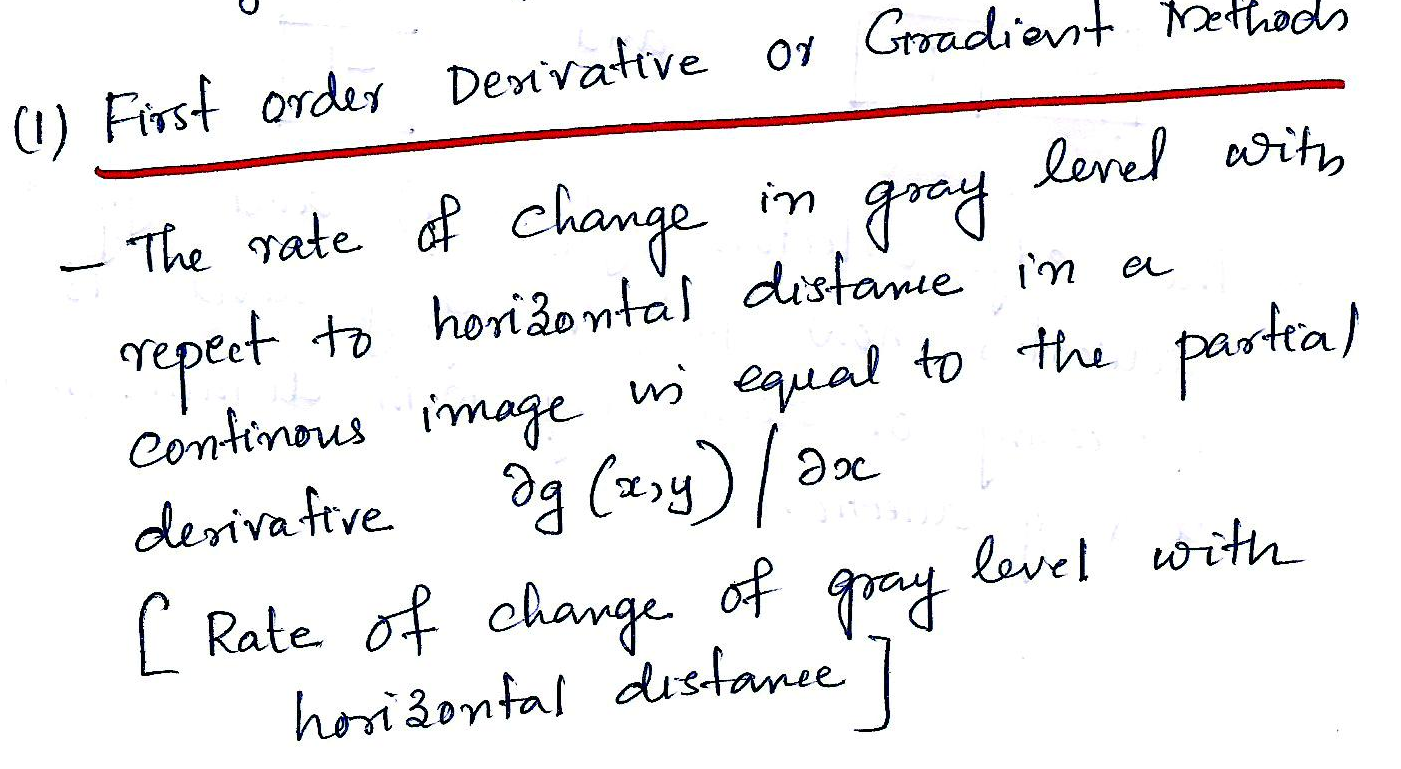 (1) First order Derivative or Gradient Methods
- The rate of change in gray level with
repect to horizontal distance in a
continous image is equal to the partial
derivative ∂g (x,y) / ∂x
[ Rate of change of gray level with
horizontal distance ]